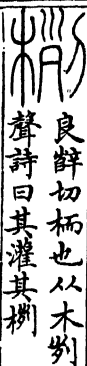 栵
良辥切栭也从木𠛱
聲詩曰其灌其栵